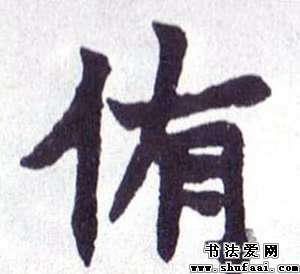 侑
书法爱网
www.shufaai.com